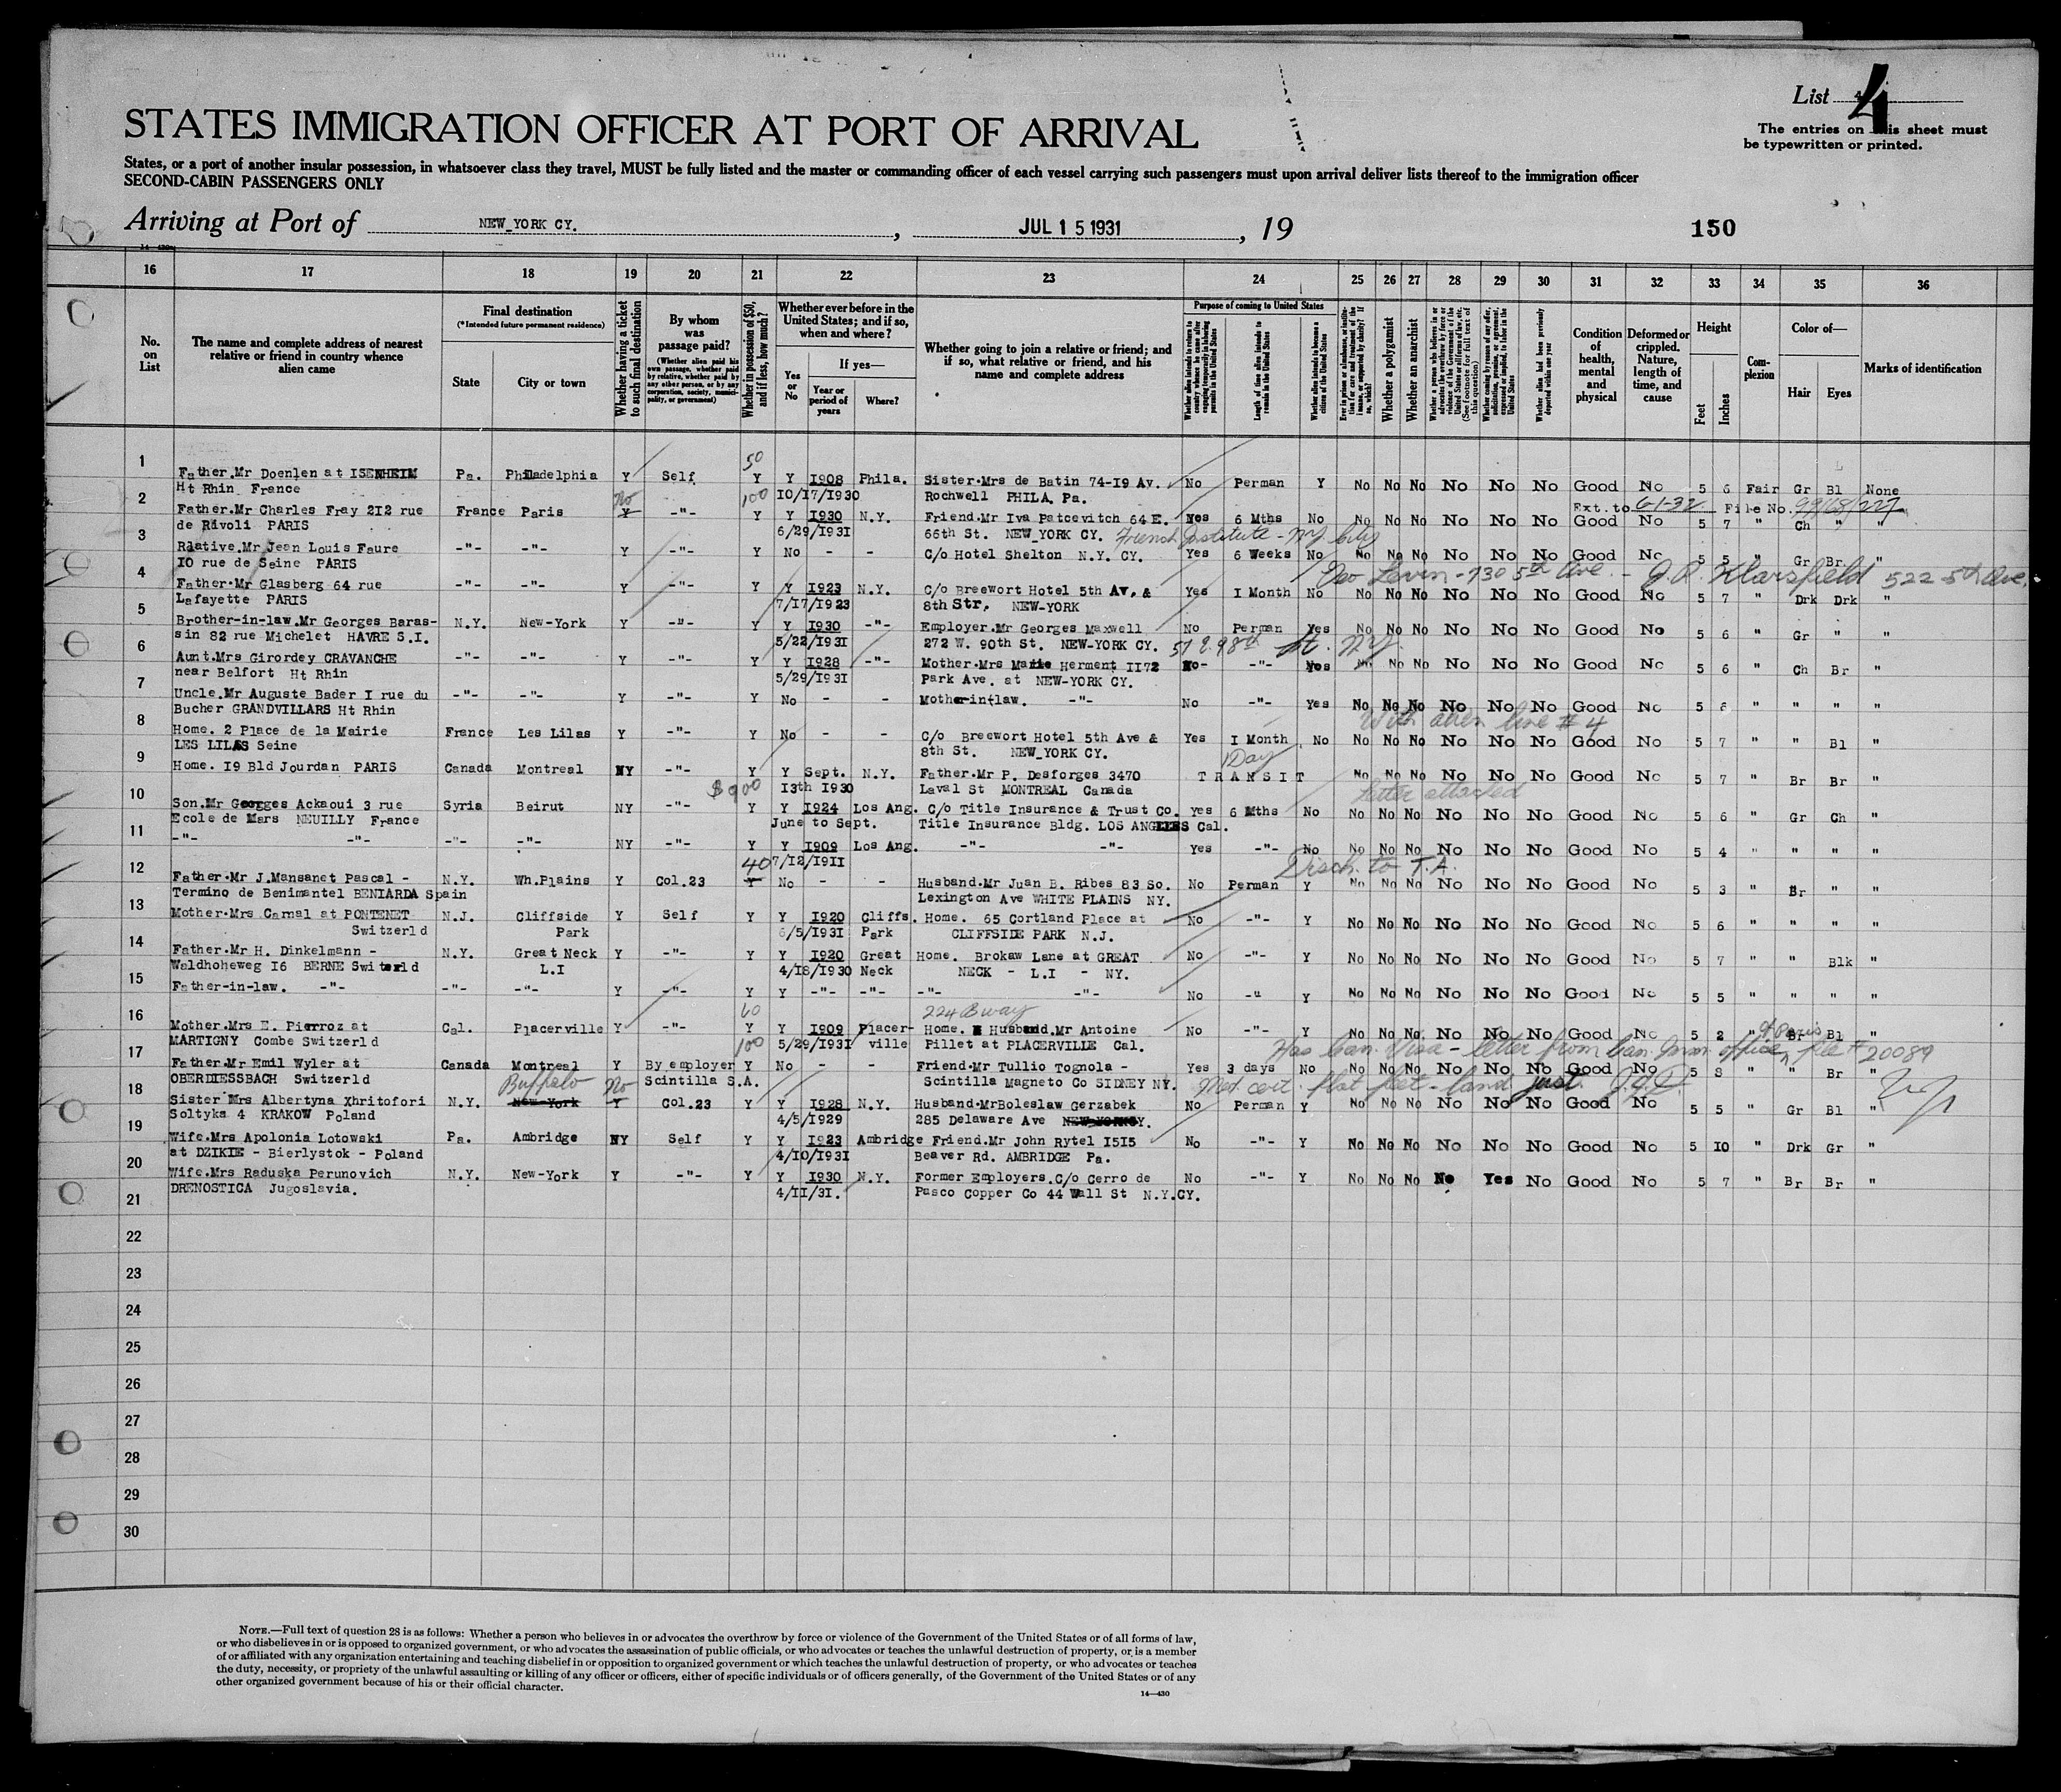 List 4
4
The entries on this sheet must
be typewritten or printed.
STATES IMMIGRATION OFFICER AT PORT OF ARRIVAL
States, or a port of another insular possession, in whatsoever class they travel, MUST be fully listed and the master or commanding officer of each vessel carrying such passengers must upon arrival deliver lists thereof to the immigration officer
SECOND-CABIN PASSENGERS ONLY
Arriving at Port of NEW_YORK CY. , JUL 15 1931 , 19
150
16 17 18 19 20 21 22 23 24 25 26 27 28 29 30 31 32 33 34 35 36
No. on List
The name and complete address of nearest relative or friend in country whence alien came
Final destination
(*Intended future permanent residence)
State City or town
Whether having a ticket to such final destination
By whom was passage paid?
(Whether alien paid his own passage, whether paid by relative, whether paid by any other person, or by any corporation, society, municipality, or government)
Whether in possession of $50, and if less, how much?
Whether ever before in the United States; and if so, when and where?
If yes—
Yes or No
Year or period of years
Where?
Whether going to join a relative or friend; and if so, what relative or friend, and his name and complete address
Purpose of coming to United States
Length of time alien intends to remain in the United States
Whether alien intends to become a citizen of the United States
Whether a polygamist
Whether an anarchist
Condition of health, mental and physical
Deformed or crippled. Nature, length of time, and cause
Height
Feet Inches
Complexion
Color of—
Hair Eyes
Marks of identification
50
1 Father.Mr Doenlen at ISENHEIM Pa. Philadelphia Y Self Y Y 1908 Phila. Sister.Mrs de Batin 74-19 Av. No Perman Y No No No No No No Good No 5 6 Fair Gr Bl None
Ht Rhin France No 100 10/17/1930 Rockwell PHILA. Pa. Ext. to 6-1-32 File No.
2 Father.Mr Charles Fray 212 rue France Paris Y -"- Y Y 1930 N.Y. Friend.Mr Iva Patcevitch 64 E. Yes 6 Mths No No No No No No No Good No 5 7 " Ch " "
de Rivoli PARIS 6/29/1931 66th St. NEW_YORK CY. French Institute - NY City
3 Rlative.Mr Jean Louis Faure -"- -"- Y -"- Y No - - C/o Hotel Shelton N.Y. CY. Yes 6 Weeks No No No No No No No Good No 5 5 " Gr Br. "
10 rue de Seine PARIS Levin - 730 5th Ave. - 522 5th Ave.
4 Father.Mr Glasberg 64 rue -"- -"- Y -"- Y Y 1923 N.Y. C/o Breewort Hotel 5th Av, & Yes I Month No No No No No No No Good No 5 7 " Drk Drk "
Lafayette PARIS 7/17/1923 8th Str, NEW-YORK
5 Brother-in-law.Mr Georges Baras- N.Y. New-York Y -"- Y Y 1930 -"- Employer.Mr Georges Maxwell No Perman Yes No No No No No No Good No 5 6 " Gr " "
sin 82 rue Michelet HAVRE S.I. 5/22/1931 272 W. 90th St. NEW-YORK CY.
6 Aunt.Mrs Girordey CRAVANCHE -"- -"- Y -"- Y Y 1928 -"- Mother.Mrs Marie Herment 1172 No- -"- Yes No No No No No No Good No 5 6 " Ch Br "
near Belfort Ht Rhin 5/29/1931 Park Ave. at NEW-YORK CY.
7 Uncle.Mr Auguste Bader I rue du -"- -"- Y -"- Y No - - Mother-in-law. -"- No -"- Yes No No No No No No Good No 5 6 " " " "
Bucher GRANDVILLARS Ht Rhin With alien line # 4
8 Home. 2 Place de la Mairie France Les Lilas Y -"- Y No - - C/o Breewort Hotel 5th Ave & Yes I Month No No No No No No No Good No 5 7 " " Bl "
LES LILAS Seine 8th St. NEW_YORK CY. 1 Day
9 Home. 19 Bld Jourdan PARIS Canada Montreal NY -"- Y Y Sept. N.Y. Father.Mr P. Desforges 3470 TRANSIT No No No No No No Good No 5 7 " Br Br "
$900 13th 1930 Laval St MONTREAL Canada Letter attached
10 Son.Mr Georges Ackaoui 3 rue Syria Beirut NY -"- Y Y 1924 Los Ang. C/o Title Insurance & Trust Co. Yes 6 Mths No No No No No No No Good No 5 6 " Gr Ch "
Ecole de Mars NEUILLY France June to Sept. Title Insurance Bldg. LOS ANGELES Cal.
11 -"- -"- -"- -"- NY Y Y 1909 Los Ang. -"- -"- Yes -"- No No No No No No No Good No 5 4 " " " "
40 7/12/1911 Disch. to T.A.
12 Father.Mr J.Mansanet Pascal - N.Y. Wh.Plains Y Col.23 Y No - - Husband.Mr Juan B. Ribes 83 So. No Perman Y No No No No No No Good No 5 3 " Br " "
Termino de Benimantel BENIARDA Spain Lexington Ave WHITE PLAINS NY.
13 Mother.Mrs Camal at PONTENET N.J. Cliffside Y Self Y Y 1920 Cliffs. Home. 65 Cortland Place at No -"- Y No No No No No No Good No 5 6 " " " "
Switzerld Park 6/5/1931 Park CLIFFSIDE PARK N.J.
14 Father.Mr H. Dinkelmann - N.Y. Great Neck Y -"- Y Y 1920 Great Home. Brokaw Lane at GREAT No -"- Y No No No No No No Good No 5 7 " " Blk "
Waldhoheweg 16 BERNE Switerld L.I 4/18/1930 Neck NECK - L.I - NY.
15 Father-in-law. -"- -"- -"- Y -"- Y Y -"- -"- -"- -"- No -" Y No No No No No No Good No 5 5 " " " "
60 224 Bway
16 Mother.Mrs E. Pierroz at Cal. Placerville Y -"- Y Y 1909 Placer- Home. Husband.Mr Antoine No -"- Y No No No No No No Good No 5 2 " Br Bl "
MARTIGNY Combe Switzerld 100 5/29/1931 ville Pillet at PLACERVILLE Cal. Has Can. Visa - letter from Can. Imm. office, of Paris, file # 20089
17 Father.Mr Emil Wyler at Canada Montreal Y By employer Y No - - Friend.Mr Tullio Tognola - Yes 3 days No No No No No No No Good No 5 8 " " Br "
OBERDIESSBACH Switzerld Buffalo No Scintilla S.A. Scintilla Magneto Co SIDNEY NY. Med. cert. flat feet - land just.
18 Sister Mrs Albertyna Xhritofori N.Y. New-York Y Col.23 Y Y 1928 N.Y. Husband.MrBoleslaw Gerzabek No Perman Y No No No No No No Good No 5 5 " Gr Bl "
Soltyka 4 KRAKOW Poland 4/5/1929 285 Delaware Ave
19 Wife.Mrs Apolonia Lotowski Pa. Ambridge NY Self Y Y 1923 Ambridge Friend.Mr John Rytel 1515 No -"- Y No No No No No No Good No 5 10 " Drk Gr "
at DZIKIE - Bierlystok - Poland 4/10/1931 Beaver Rd. AMBRIDGE Pa.
20 Wife.Mrs Raduska Perunovich N.Y. New-York Y -"- Y Y 1930 N.Y. Former Employers.C/o Cerro de No -"- Y No No No No Yes No Good No 5 7 " Br Br "
DRENOSTICA Jugoslavia. 4/11/31. Pasco Copper Co 44 Wall St N.Y.CY.
21
22
23
24
25
26
27
28
29
30
NOTE.—Full text of question 28 is as follows: Whether a person who believes in or advocates the overthrow by force or violence of the Government of the United States or of all forms of law,
or who disbelieves in or is opposed to organized government, or who advocates the assassination of public officials, or who advocates or teaches the unlawful destruction of property, or is a member
of or affiliated with any organization entertaining and teaching disbelief in or opposition to organized government or which teaches the unlawful destruction of property, or who advocates or teaches
the duty, necessity, or propriety of the unlawful assaulting or killing of any officer or officers, either of specific individuals or of officers generally, of the Government of the United States or of any
other organized government because of his or their official character.
14—430